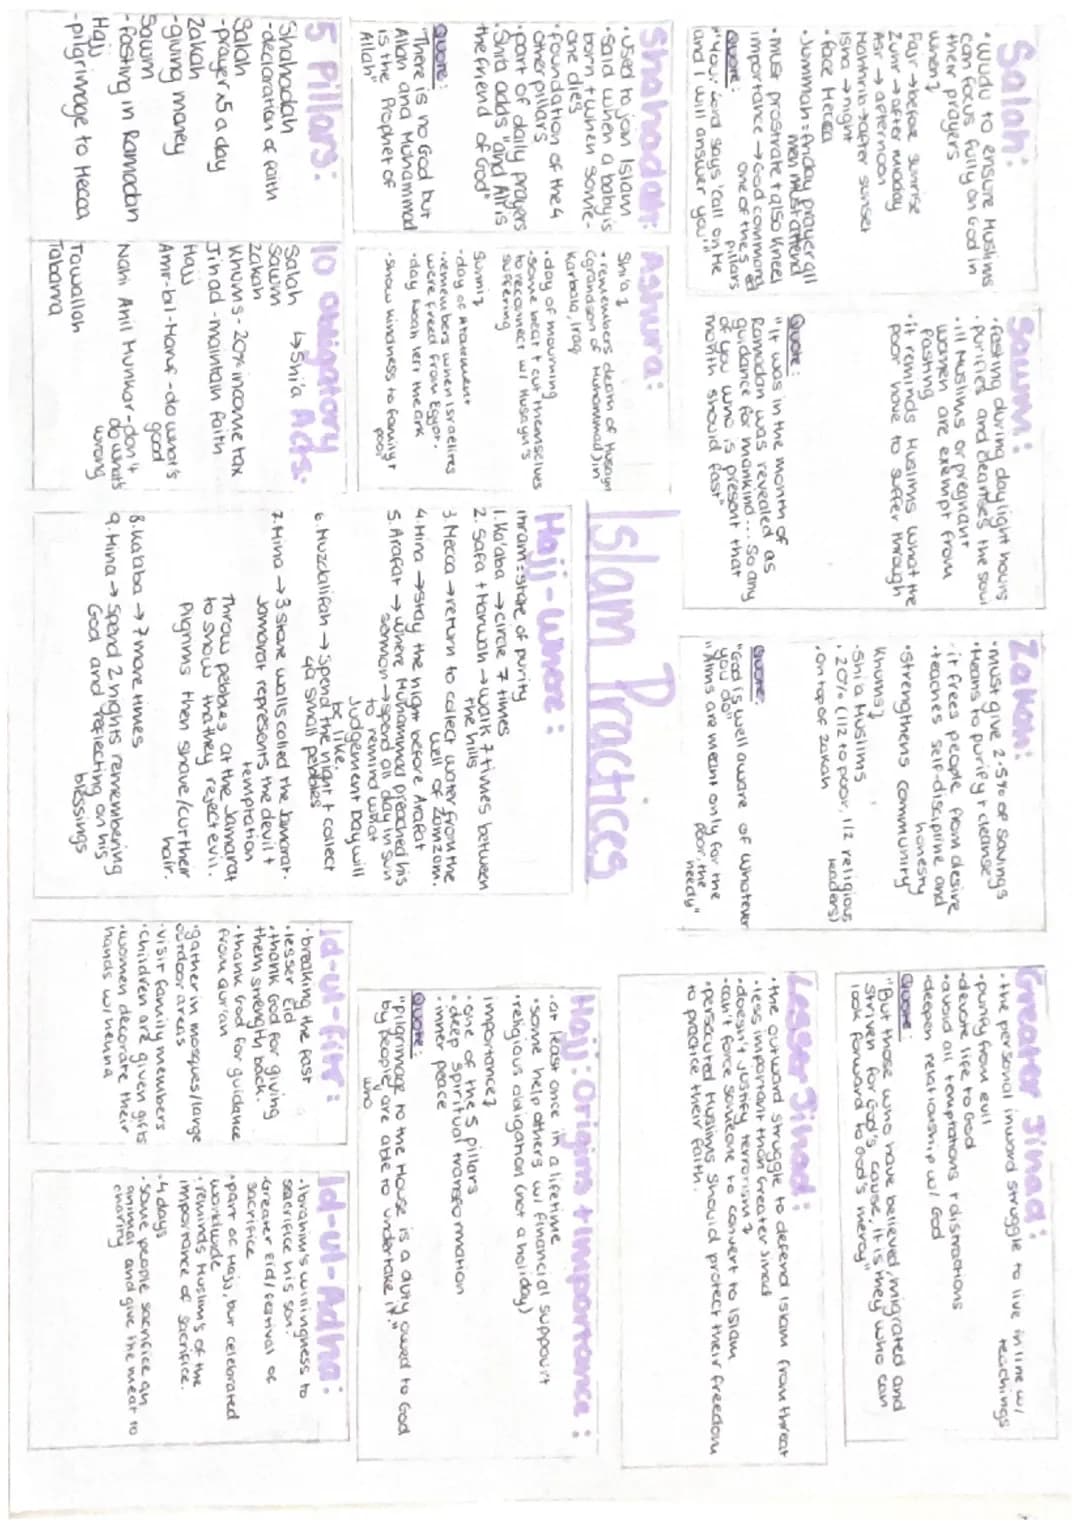 Islam Practices
Salah:
• Wudu to ensure Muslims
can focus fully on God in
their prayers
When?
Fajr → before sunrise
Zuhr → after midday
Asr → afternoon
Maghrib → after sunset
Isha → night
• face Mecca
• Jummah = friday prayer all
men must attend
• must prostrate + also kneel
importance → God commands
one of the 5 pillars
Quote:
"Your Lord says 'call on Me
and I will answer you'"
Sawm:
• fasting during daylight hours
• purifies and cleanses the soul
• ill Muslims or pregnant
women are exempt from
fasting
• it reminds Muslims what the
poor have to suffer through
Quote:
"It was in the month of
Ramadan was revealed as
guidance for mankind... So any
of you who is present that
month should fast"
Zakah:
• must give 2.5% of savings
• means to purify + cleanse
• it frees people from desire
• teaches self-discipline and
honesty
• strengthens community
Khums?
• Shi'a Muslims
• 20% (1/2 to poor, 1/2 religious
leaders)
• on top of zakah
Quote:
"God is well aware of whatever
you do"
"Alms are meant only for the
poor, the
needy"
Greater Jihad:
• the personal inward struggle to live in line w/
teachings
• purify from evil
• devote life to God
• avoid all temptations + distractions
• deepen relationship w/ God
Quote:
"But those who have believed, migrated and
striven for God's cause, it is they who can
look forward to God's mercy"
Shahadah:
• Used to join Islam
• said when a baby is
born + when some-
one dies
• foundation of the 4
other pillars
• part of daily prayers
• Shi'a adds "and Ali is
the friend of God"
Quote:
"There is no God but
Allah and Muhammad
is the Prophet of
Allah"
Ashura:
Shi'a?
• remembers death of Husayn
(grandson of Muhammad) in
Karbala, Iraq
• day of mourning
• some beat + cut themselves
to reconnect w/ Husayn's
suffering
Sunni?
• day of Atonement
• remembers when Israelites
were freed from Egypt.
• day Noah left the ark
• show kindness to family +
poor
Lesser Jihad:
• the outward struggle to defend Islam from threat
• less important than Greater Jihad
• doesn't justify terrorism?
• can't force someone to convert to Islam
• persecuted Muslims should protect their freedom
to practice their faith.
5 Pillars:
Shahadah
- declaration of faith
Salah
- prayer x5 a day
Zakah
- giving money
Sawm
- fasting in Ramadan
Hajj
- pilgrimage to Mecca
10 Obligatory
Acts.
↳ Shi'a
Salah
Sawm
Zakah
Khums - 20% income tax
Jihad - maintain faith
Hajj
Amr-bil-Maruf - do what's
good
Nahi Anil Munkar - don't
do what's
wrong
Tawallah
Tabarra
Hajj - Where:
Ihram = state of purity
1. Ka'aba → circle 7 times
2. Safa + Marwah → walk 7 times between
the hills
3. Mecca → return to collect water from the
well of Zamzam.
4. Mina → stay the night before Arafat
5. Arafat → where Muhammad preached his
sermon → spend all day in sun
to remind what
Judgement Day will
be like.
6. Muzdalifah → Spend the night + collect
49 small pebbles
7. Mina → 3 stone walls called the Jamarat.
Jamarat represents the devil +
temptation
Throw pebbles at the Jamarat
to show that they reject evil.
Pilgrims then shave/cut their
hair.
8. Ka'aba → 7 more times
9. Mina → Spend 2 nights remembering
God and reflecting on his
blessings
Hajj: Origins + Importance:
• at least once in a lifetime
• some help others w/ financial support
• religious obligation (not a holiday)
importance?
• one of the 5 pillars
• deep spiritual transformation
• inner peace
Quote:
"pilgrimage to the House is a duty owed to God
by people who are able to undertake it."
Id-ul-fitr:
• breaking the fast
• lesser Eid
• thank God for giving
them strength back.
• thank God for guidance
from Qur'an
• gather in mosques/large
outdoor areas
• visit family members
• children are given gifts
• women decorate their
hands w/ henna
Id-ul-Adha:
• Ibrahim's willingness to
sacrifice his son.
• Greater Eid/festival of
sacrifice
• part of Hajj, but celebrated
worldwide
• reminds Muslims of the
importance of sacrifice.
• 4 days
• some people sacrifice an
animal and give the meat to
charity